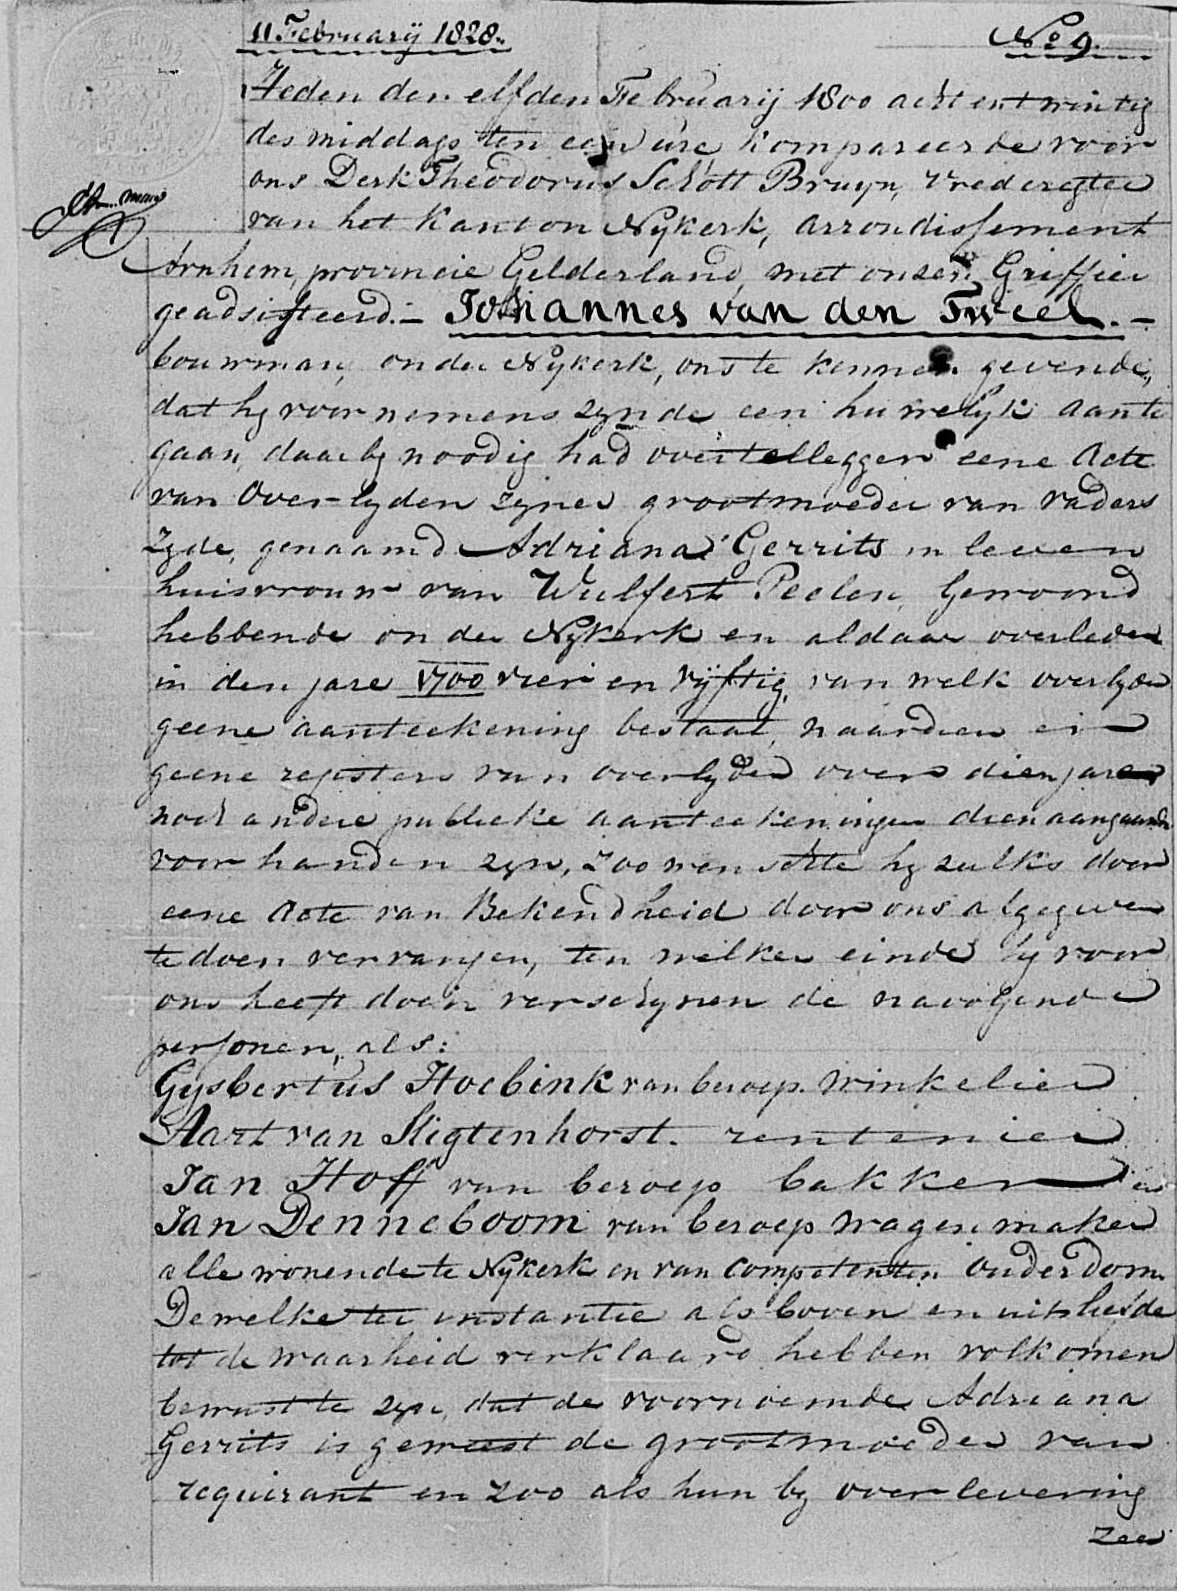 11 Februarij 1828. No 9.
Heden den elfden Februarij 1800 acht en twintig
des middags ten een ure kompareerde voor
ons Derk Theodorus Schott Bruyn, Vrederegter
van het Kanton Nykerk, arrondissement
Arnhem, provincie Gelderland, met onzen Griffier
geadsisteerd. – Johannes van den Tweel. –
bouwman, onder Nykerk, ons te kennen gevende,
dat hy voornemens zynde een huwelyk aan te
gaan, daarby noodig had over te leggen eene Acte
van Over-lyden zyner grootmoeder van vaders
zyde, genaamd Adriana Gerrits in leven
huisvrouw van Wulfert Peelen, Gewoond
hebbende onder Nykerk en aldaar overleden
in den jare 1700 vier en vyftig, van welk overlyden
geene aanteekening bestaat, naardien er
geene registers van overlyden over dien jare
noch andere publieke aanteekeningen dienaangaande
voor handen zyn, zoo wenschte hy zulks door
eene Acte van Bekendheid door ons afgegeven
te doen vervangen, ten welken einde hy voor
ons heeft doen verschynen de navolgende
personen, als:
Gysbertus Hoebink van beroep winkelier
Aart van Sligtenhorst. rentenier
Jan Hoff van beroep bakker en
Jan Denneboom van beroep wagenmaker
alle wonende te Nykerk en van competenten ouderdom
Dewelke ter instantie als boven en uit liefde
tot de waarheid verklaard hebben volkomen
bewust te zyn, dat de voornoemde Adriana
Gerrits is geweest de grootmoeder van
requirant en zoo als hun by overlevering
zeer